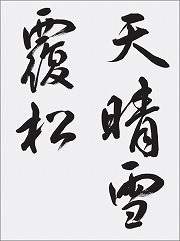 天晴雪
覆松